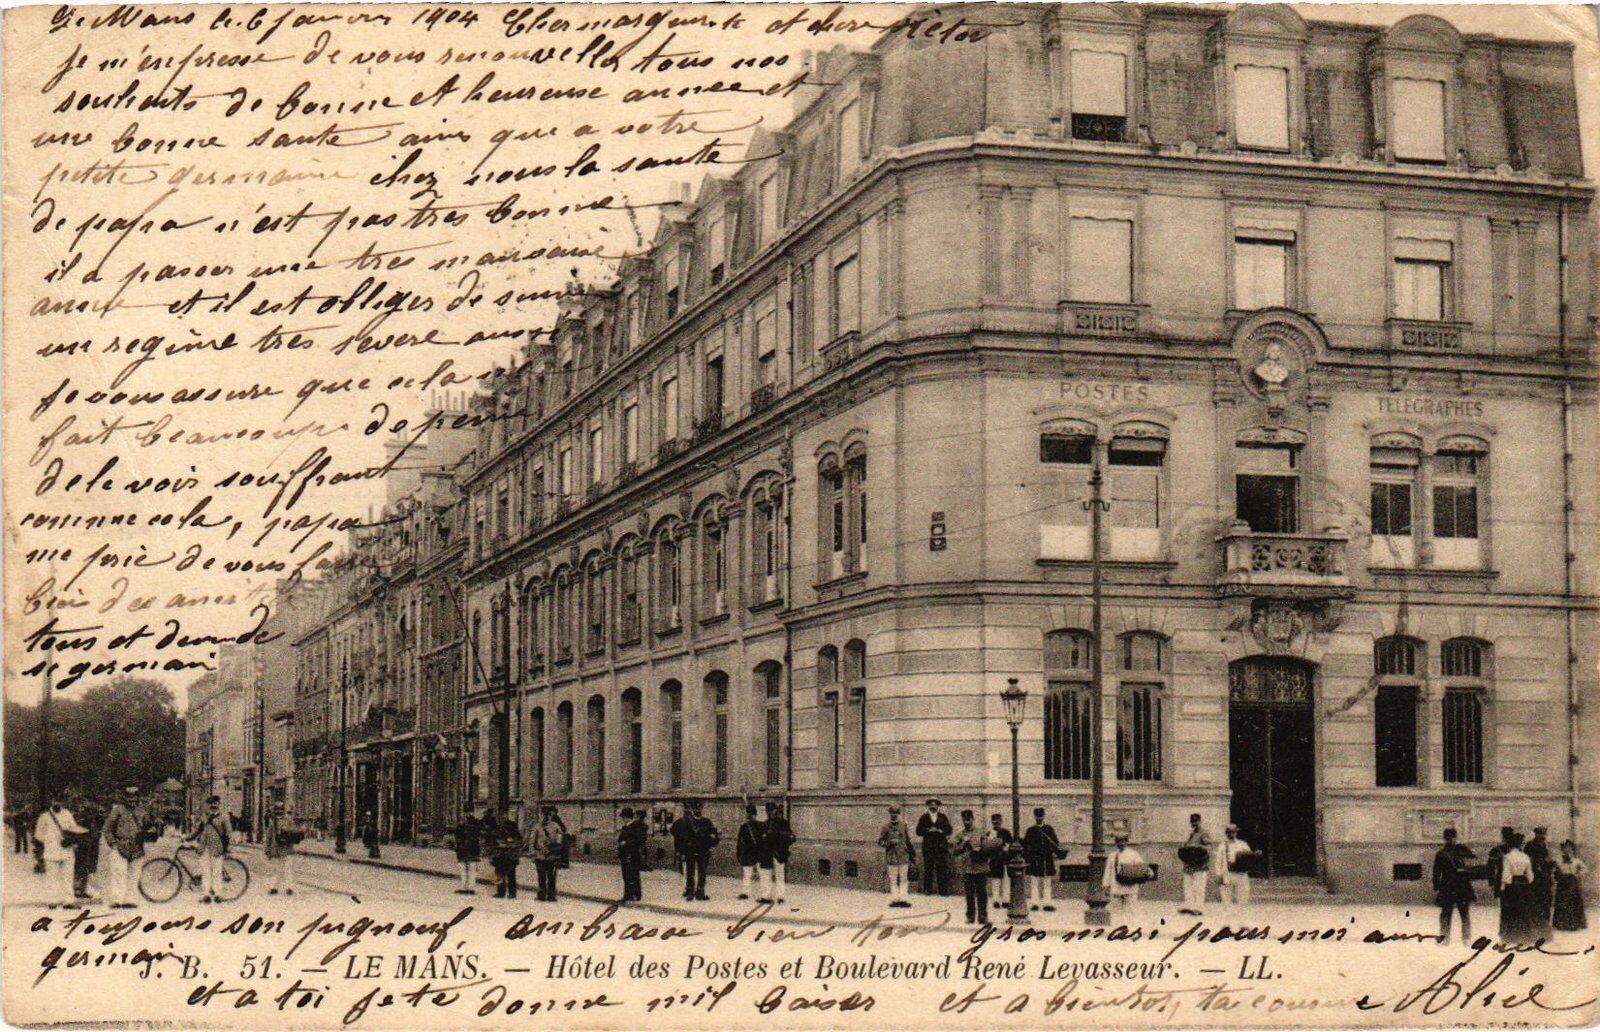 Le Mans le 6 janvier 1904 Cher marguerite et cher Victor
je m'enpresse de vous renouveller tous nos
souhaits de bonne et heureuse annee et
une bonne sante ains que a votre
petite germaine chez nous la sante
de papa n'est pas tres bonne
il a passer une tres mauvaise
anne et il est obliger de suivre
un regime tres severe aussi
je vous assure que cela me
fait beaucoup de peine
de le voir souffrant
comme cela, papa
me prie de vous faire
bien des amitie
tous et demende
si germain
POSTES
TÉLÉGRAPHES
a toujours son pignouf, ambrasse bien ton gros mari pour moi ains que
germain
J. B. 51. — LE MANS. — Hôtel des Postes et Boulevard René Levasseur. — LL.
et a toi je te donne mil baiser et a bientot, ta cousine Alice